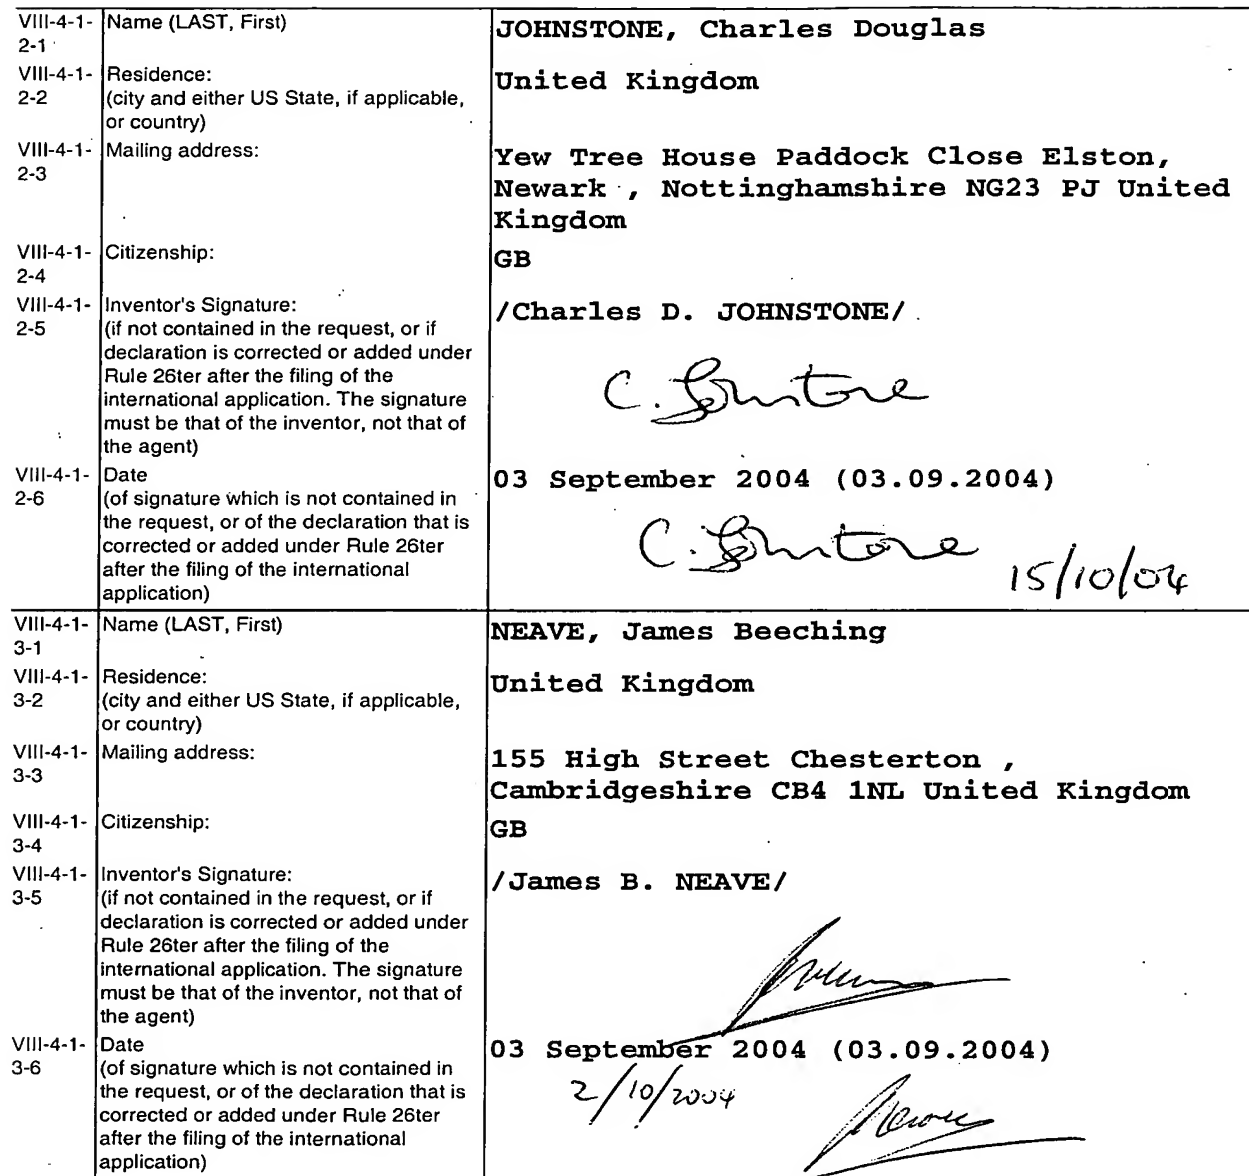 VIII-4-1-2-1 Name (LAST, First) JOHNSTONE, Charles Douglas
VIII-4-1-2-2 Residence: United Kingdom
(city and either US State, if applicable,
or country)
VIII-4-1-2-3 Mailing address: Yew Tree House Paddock Close Elston,
Newark , Nottinghamshire NG23 PJ United
Kingdom
VIII-4-1-2-4 Citizenship: GB
VIII-4-1-2-5 Inventor's Signature: /Charles D. JOHNSTONE/
(if not contained in the request, or if
declaration is corrected or added under
Rule 26ter after the filing of the
international application. The signature
must be that of the inventor, not that of
the agent)
C. Johnstone
VIII-4-1-2-6 Date 03 September 2004 (03.09.2004)
(of signature which is not contained in
the request, or of the declaration that is
corrected or added under Rule 26ter
after the filing of the international
application)
C. Johnstone 15/10/04
VIII-4-1-3-1 Name (LAST, First) NEAVE, James Beeching
VIII-4-1-3-2 Residence: United Kingdom
(city and either US State, if applicable,
or country)
VIII-4-1-3-3 Mailing address: 155 High Street Chesterton ,
Cambridgeshire CB4 1NL United Kingdom
VIII-4-1-3-4 Citizenship: GB
VIII-4-1-3-5 Inventor's Signature: /James B. NEAVE/
(if not contained in the request, or if
declaration is corrected or added under
Rule 26ter after the filing of the
international application. The signature
must be that of the inventor, not that of
the agent)
VIII-4-1-3-6 Date 03 September 2004 (03.09.2004)
(of signature which is not contained in
the request, or of the declaration that is
corrected or added under Rule 26ter
after the filing of the international
application)
2/10/2004